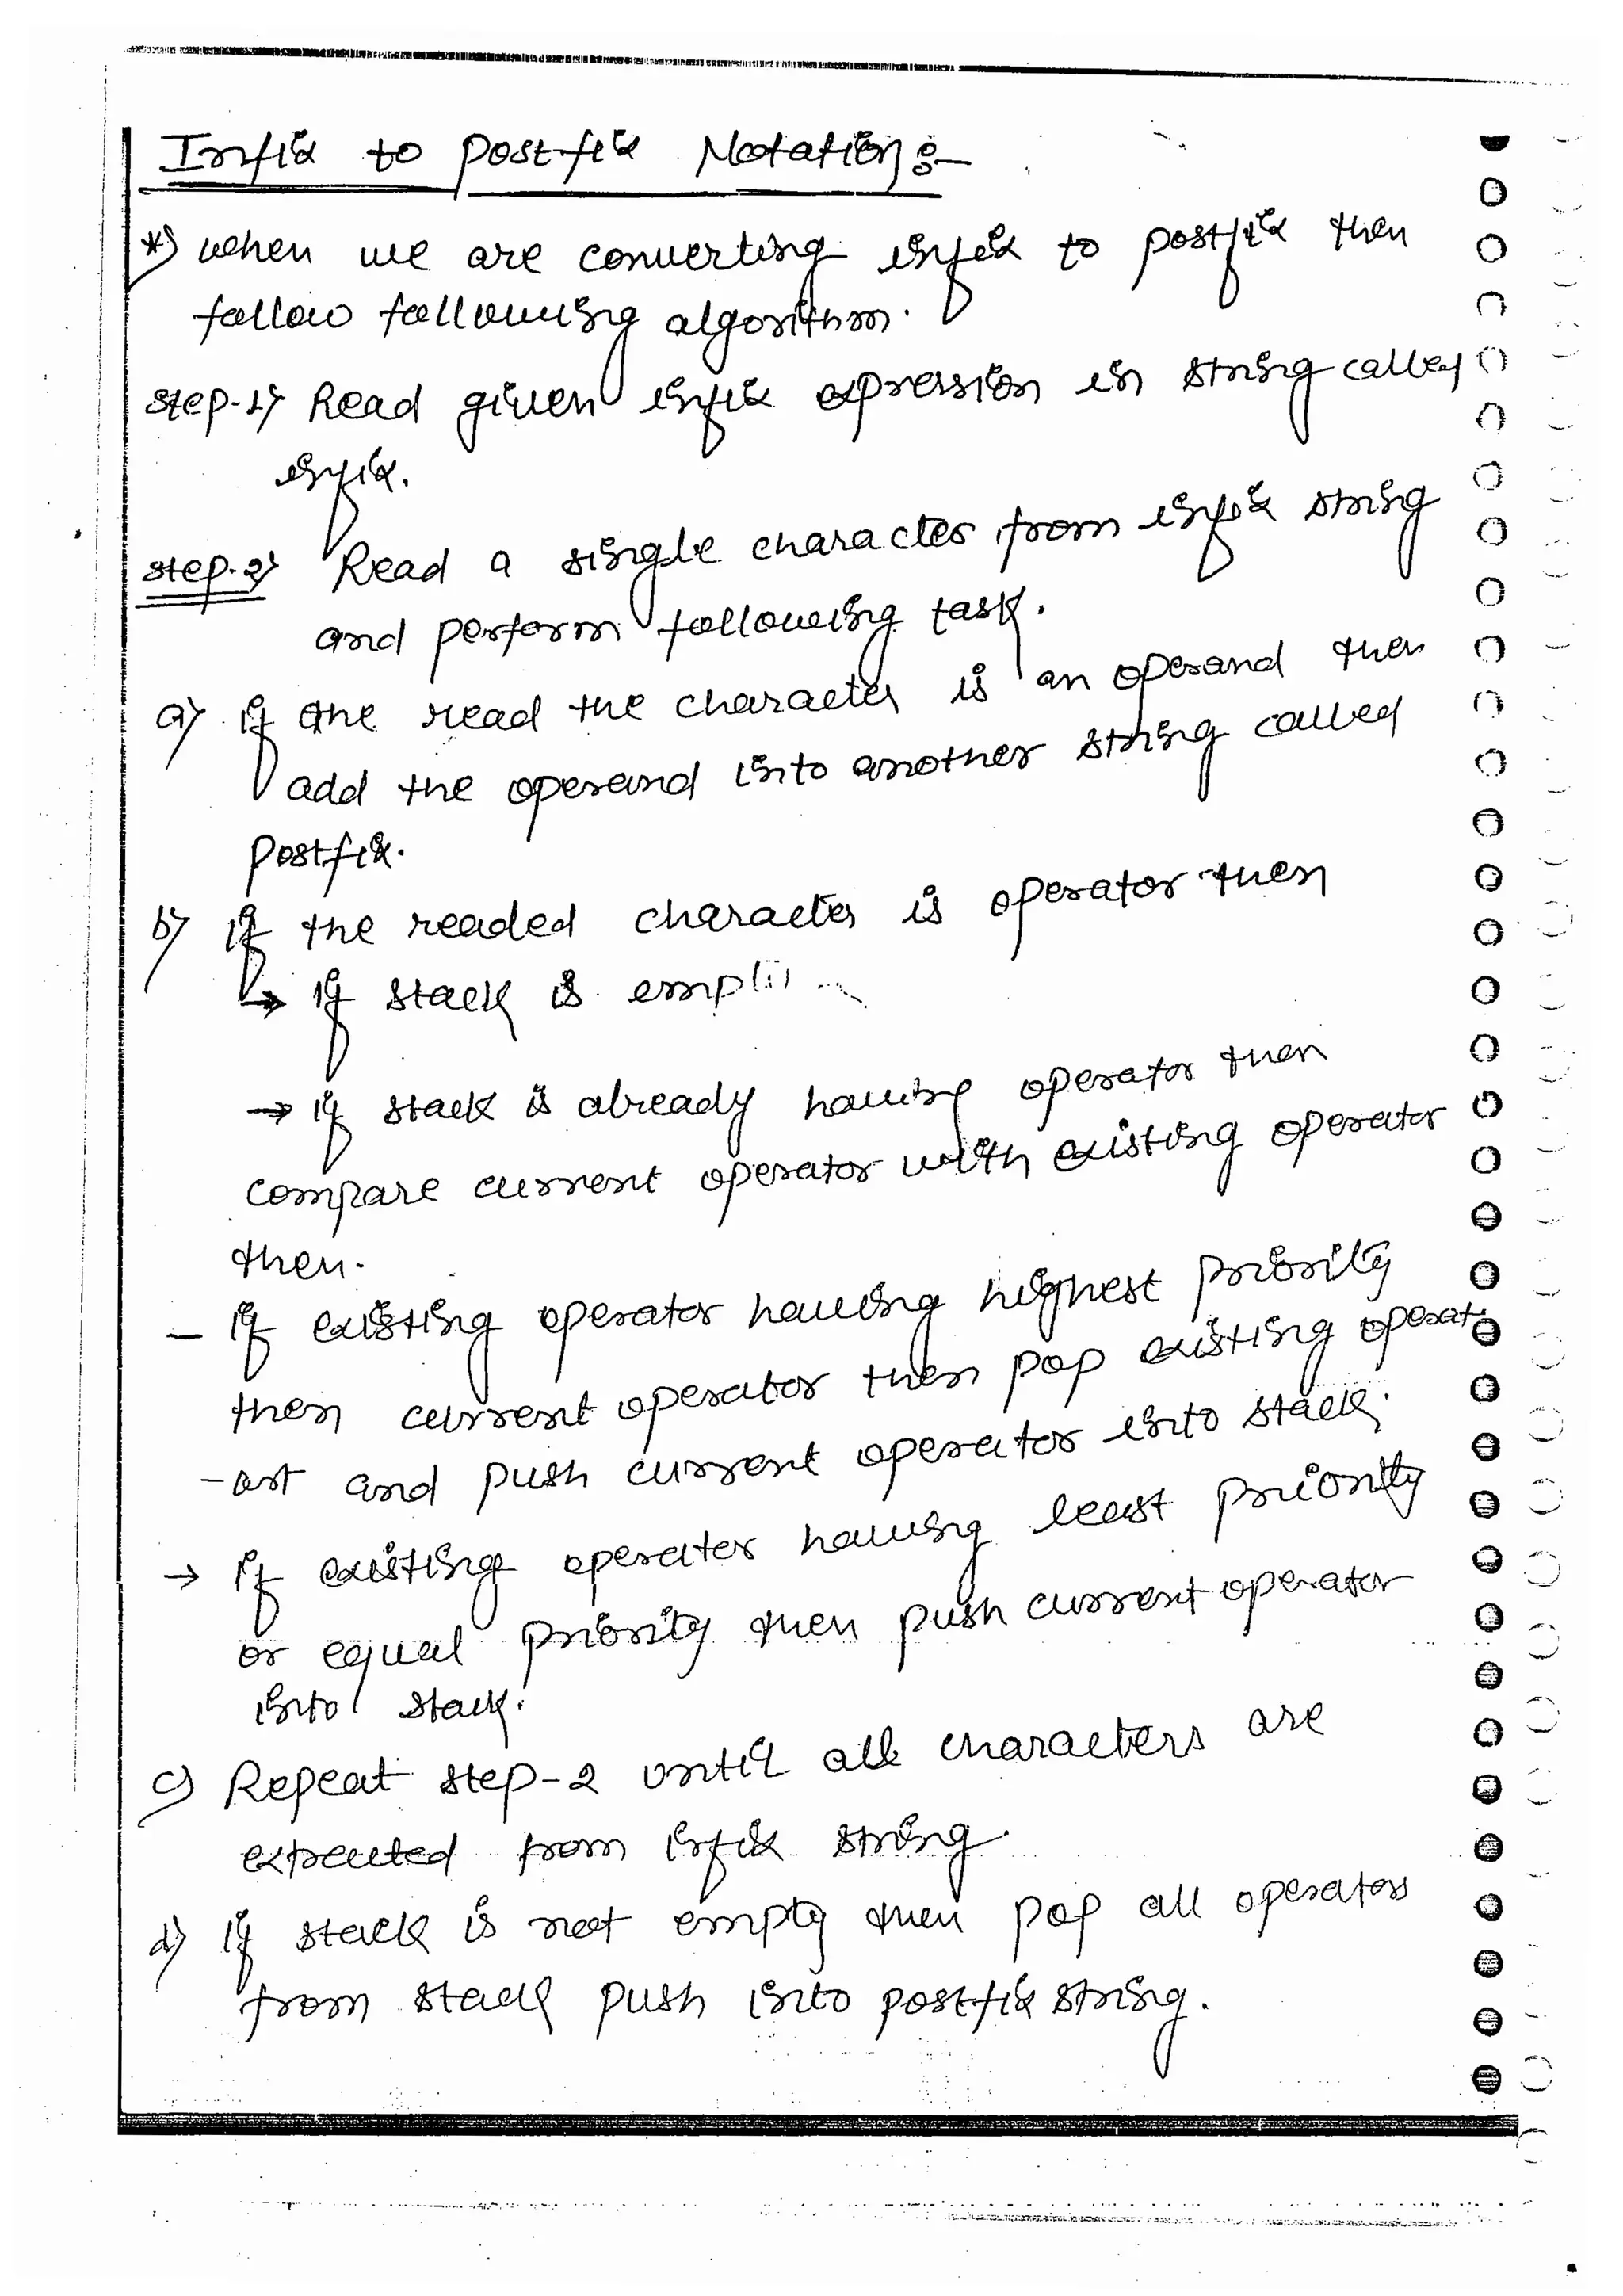 Infix to postfix Notation:-
*) when we are converting infix to postfix then
follow following algorithm.
step-1) Read given infix expression in string called
infix.
step-2) Read a single character from infix string
and perform following task.
a) if the read the character is an operand then
add the operand into another string called
Postfix.
b) if the readed character is operator then
→ if stack is
→ if stack is already having operator then
compare current operator with existing operator
then.
- if existing operator having highest priority
then current operator then pop existing operat
and push current operator into stack.
→ if existing operator having least priority
or equal priority then push current operator
into stack.
c) Repeat step-2 until all characters are
from infix string.
d) if stack is not empty then pop all operators
from stack push into postfix string.